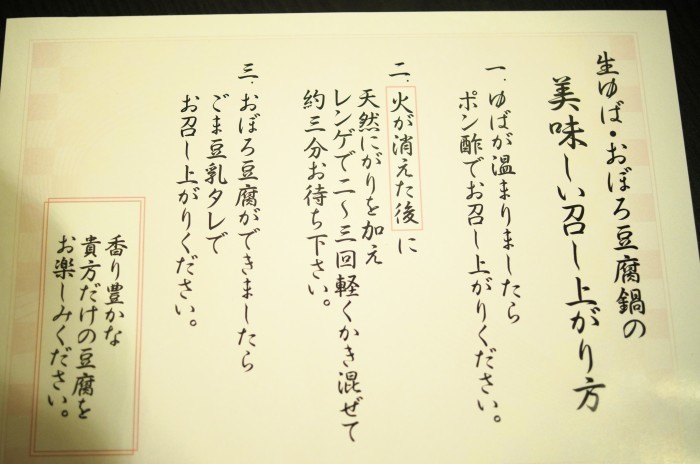 生ゆば・おぼろ豆腐鍋の
美味しい召し上がり方
一．ゆばが温まりましたら
ポン酢でお召し上がりください。
二．火が消えた後に
天然にがりを加え
レンゲで二～三回軽くかき混ぜて
約三分お待ち下さい。
三．おぼろ豆腐ができましたら
ごま豆乳タレで
お召し上がりください。
香り豊かな
貴方だけの豆腐を
お楽しみください。